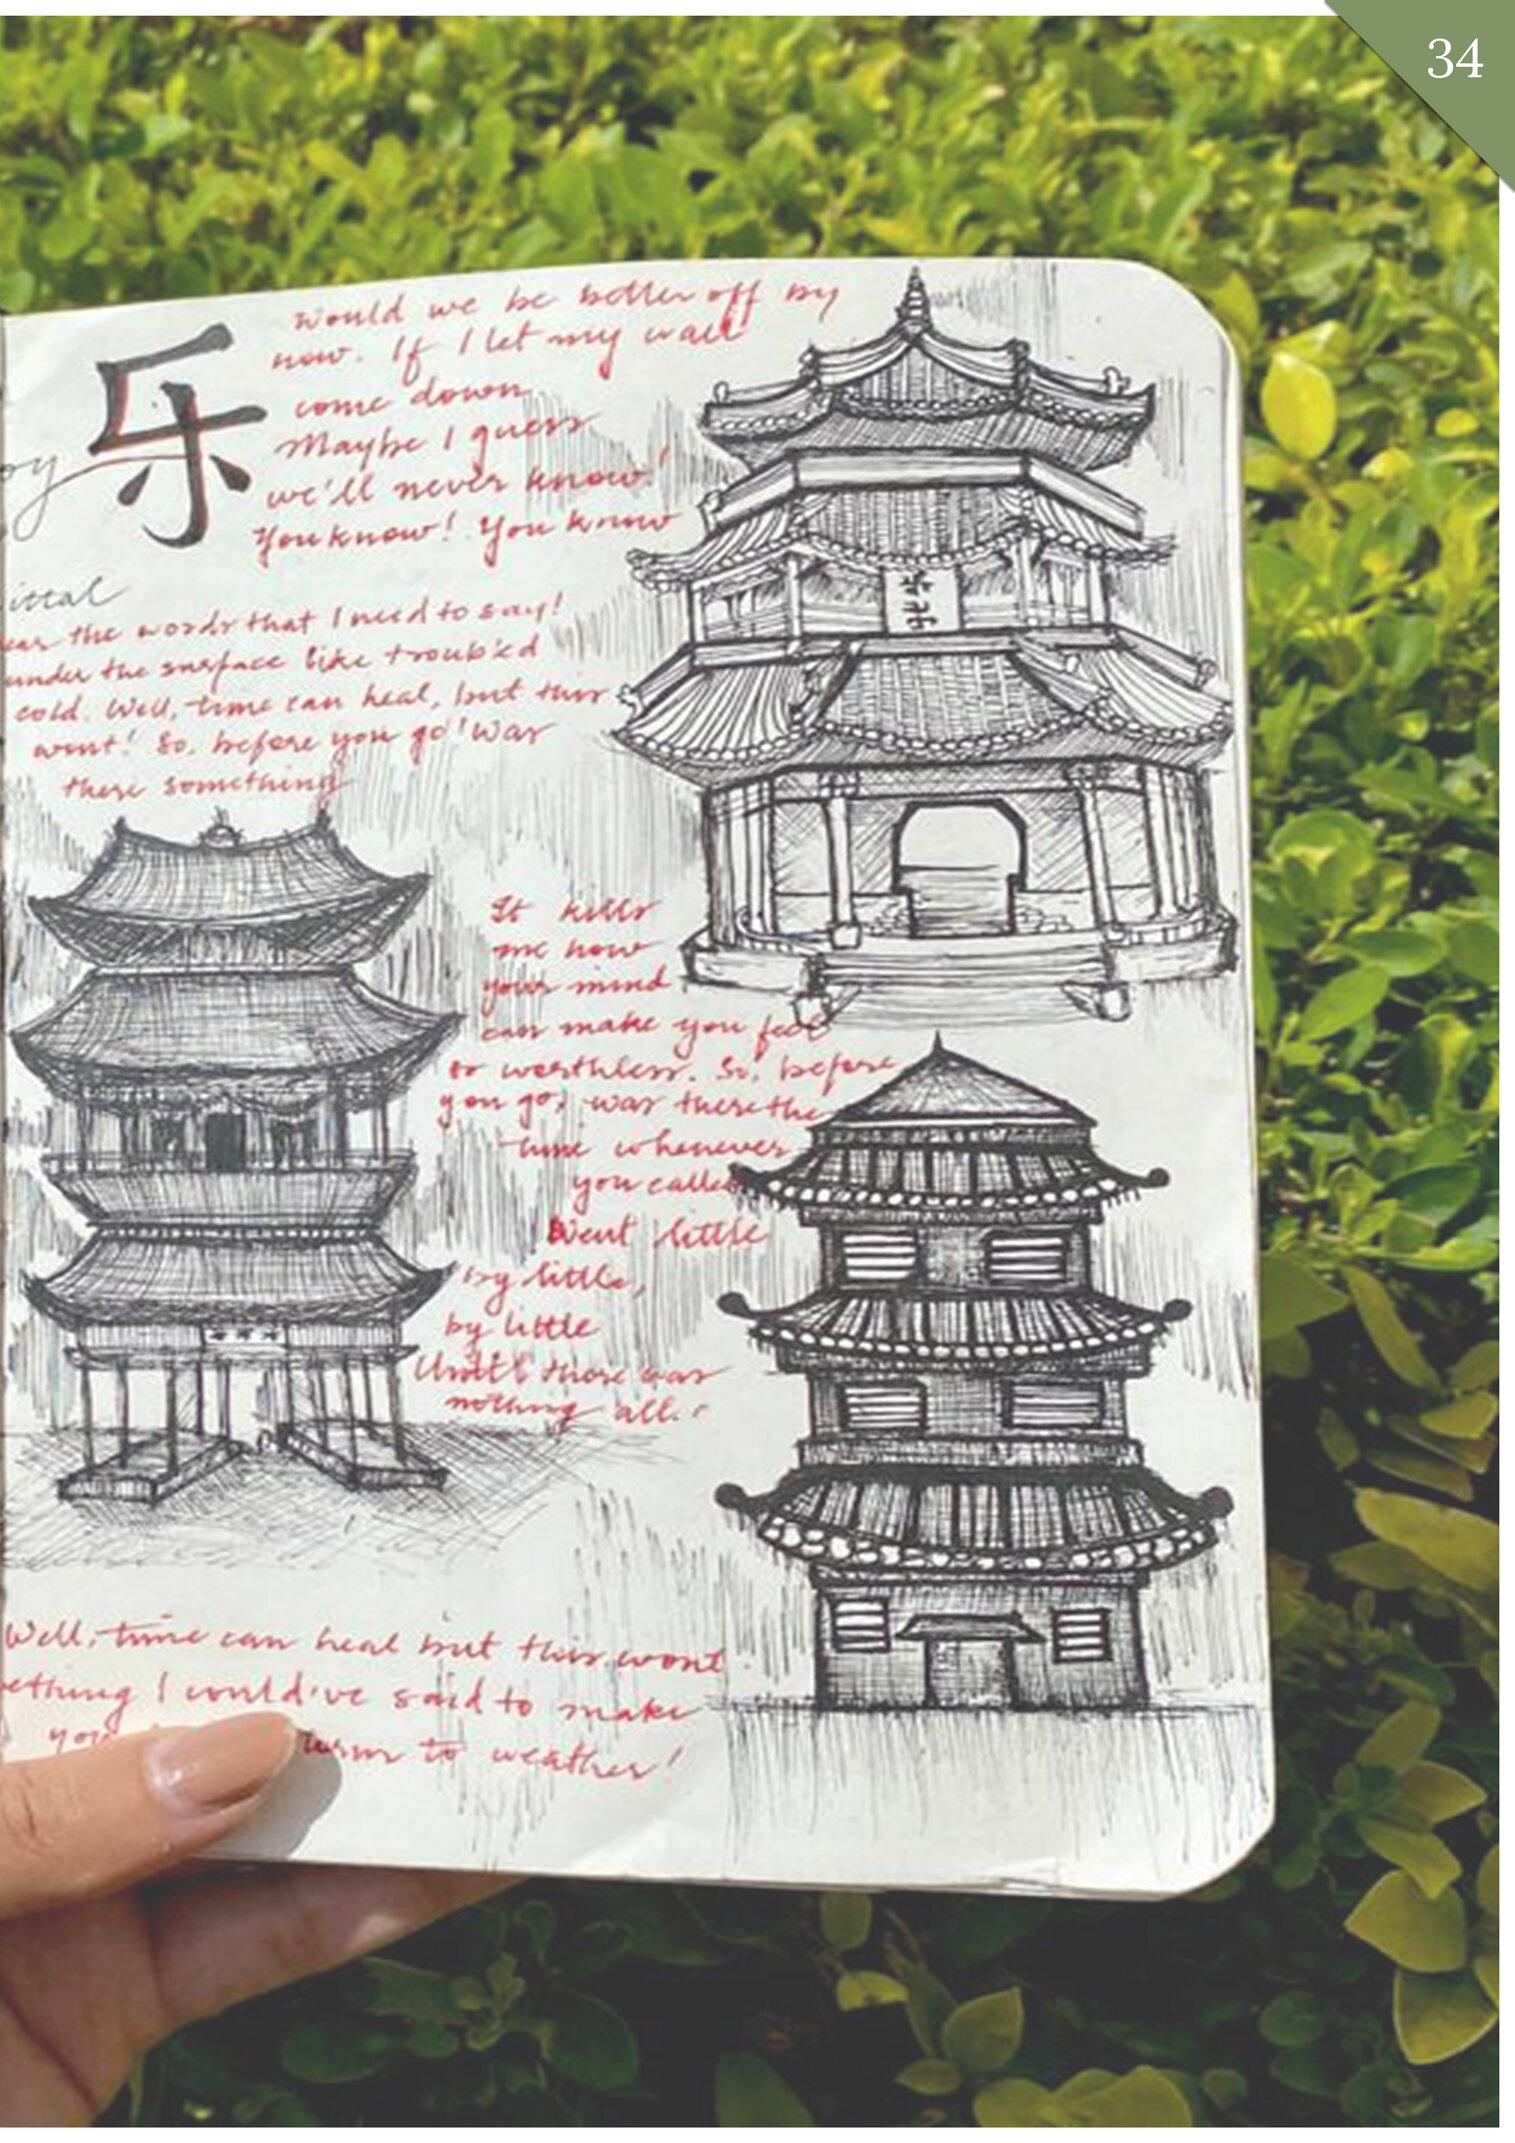 34
乐
would we be better off by
now. If I let my wall
come down
Maybe I guess
we'll never know!
You know! You know
the words that I need to say!
under the surface like troubl'd
cold. Well, time can heal, but this
wont! So, before you go! Was
there something
It kills
me how
your mind
can make you feel
so worthless. So, before
you go, was there the
time whenever
you called
Went little
by little,
by little
Until there was
nothing all.
Well, time can heal but this wont
ething I could've said to make
to weather!